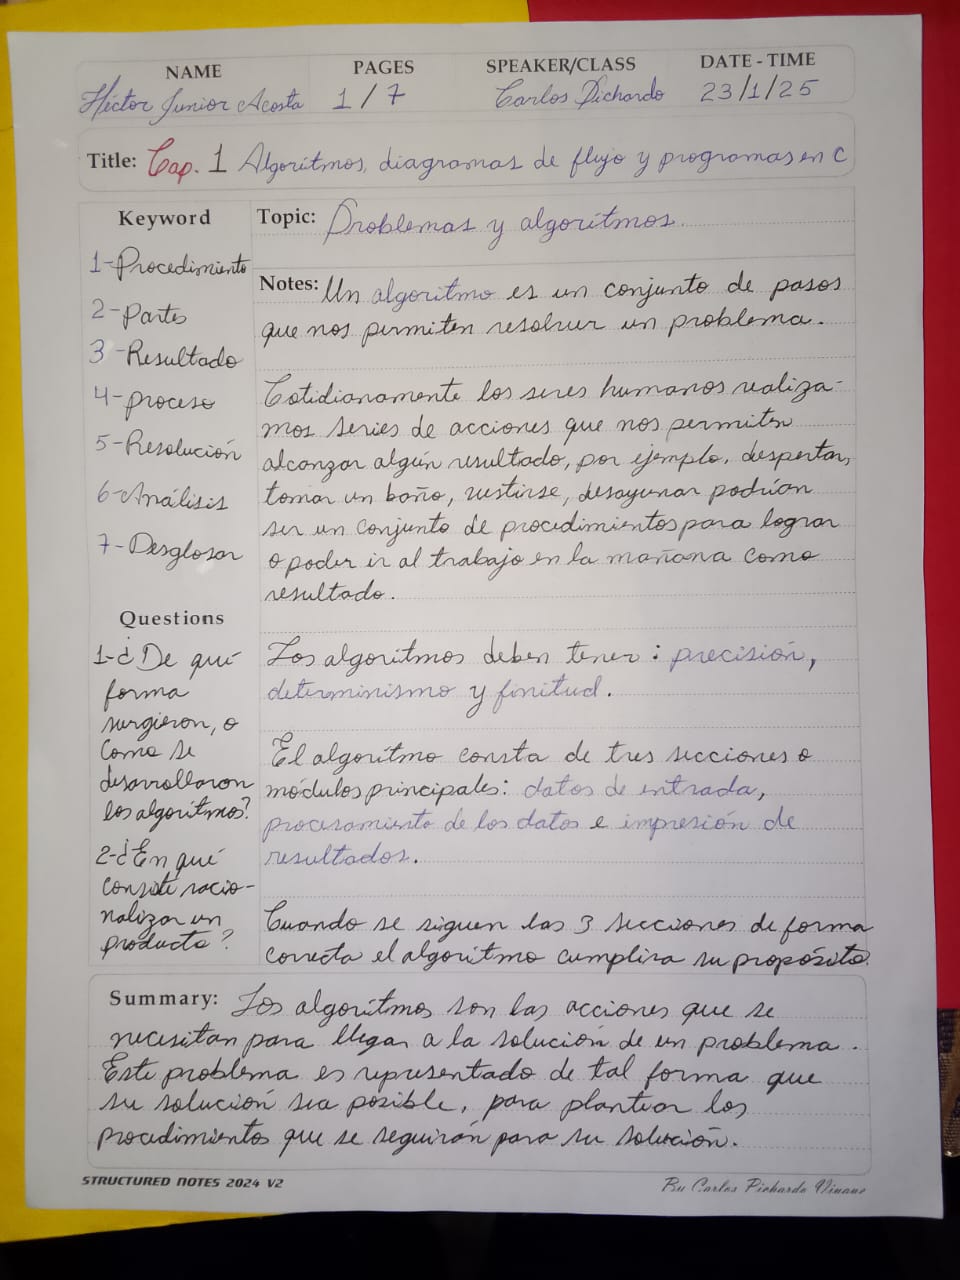 NAME PAGES SPEAKER/CLASS DATE - TIME
Héctor Junior Acosta 1/7 Carlos Pichardo 23/1/25
Title: Cap. 1 Algorítmos, diagramas de flujo y programas en C
Keyword
1-Procedimiento
2-Partes
3-Resultado
4-proceso
5-Resolución
6-Análisis
7-Desglosar
Questions
1-¿De qué
forma
surgieron, o
como se
desarrollaron
los algorítmos?
2-¿En qué
consite racio-
nalizar un
producto?
Topic: Problemas y algorítmos.
Notes: Un algorítmo es un conjunto de pasos
que nos permiten resolver un problema.
Cotidianamente los seres humanos realiza-
mos series de acciones que nos permiten
alcanzar algún resultado, por ejemplo, despertar,
tomar un baño, vestirse, desayunar podrían
ser un conjunto de procedimientos para lograr
o poder ir al trabajo en la mañana como
resultado.
Los algorítmos deben tener: precisión,
determinismo y finitud.
El algorítmo consta de tres secciones o
módulos principales: datos de entrada,
procesamiento de los datos e impresión de
resultados.
Cuando se siguen las 3 secciones de forma
correcta el algorítmo cumplira su propósito.
Summary: Los algorítmos son las acciones que se
necesitan para llegar a la solución de un problema.
Este problema es representado de tal forma que
su solución sea posible, para plantear los
procedimientos que se seguirán para su solución.
STRUCTURED NOTES 2024 V2 By Carlos Pichardo Viuque